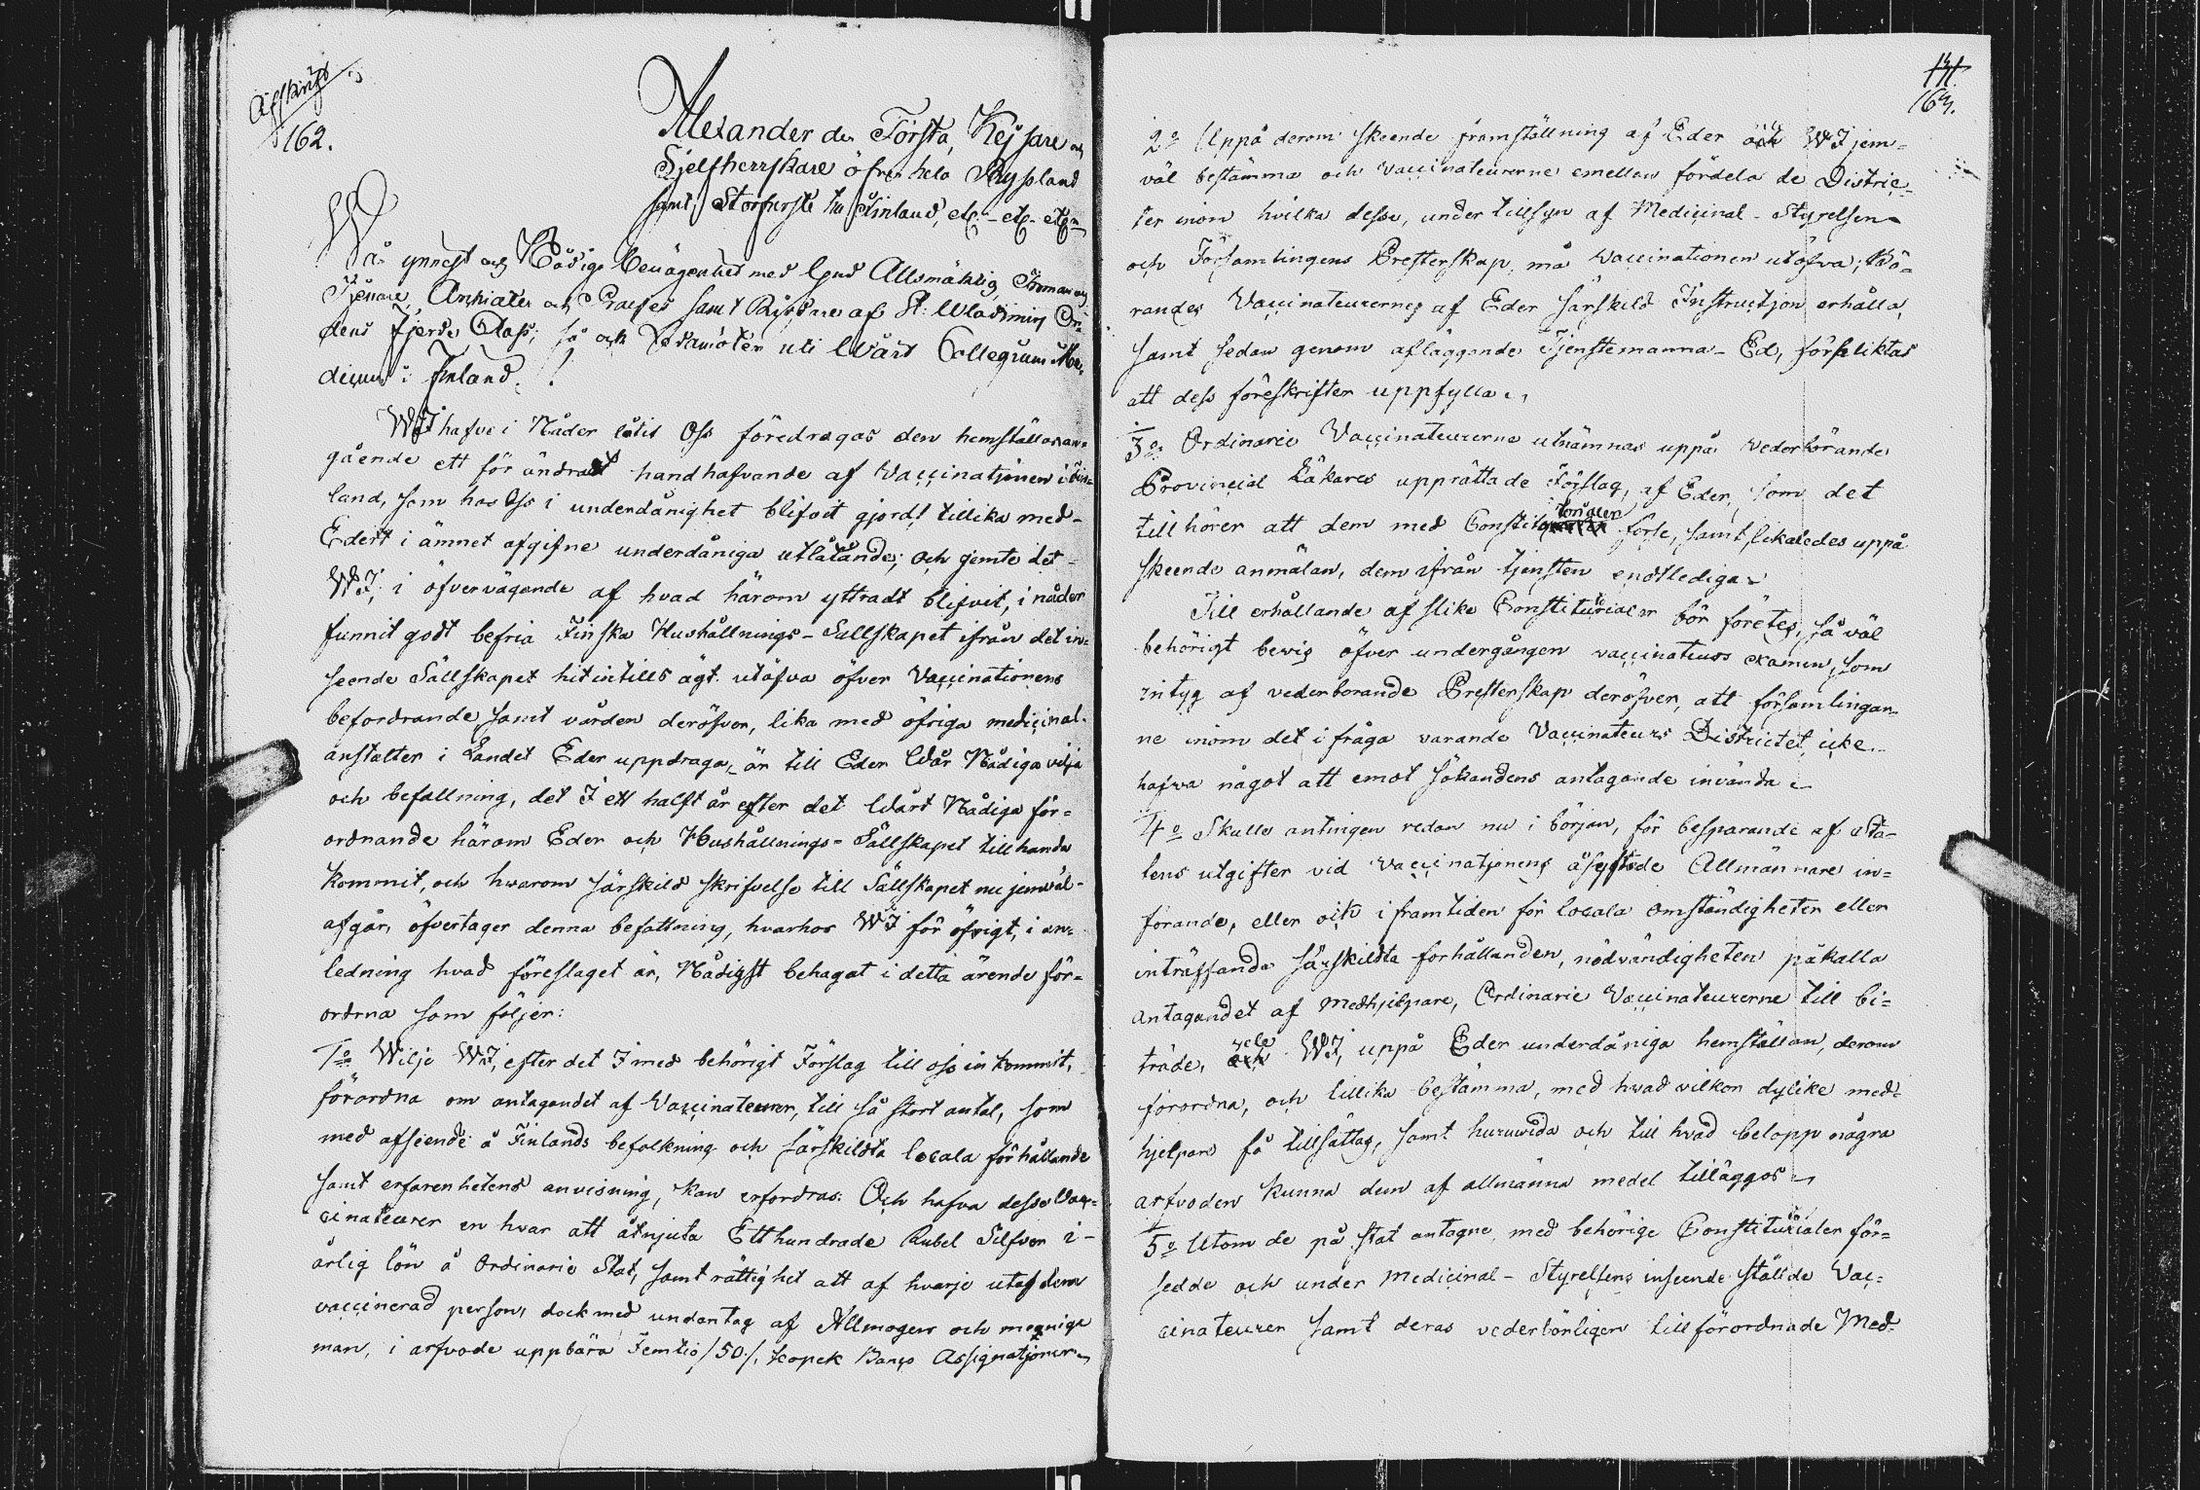 Afskrift
162.
Alexander den Första, Kejsare och
Sjelfherrskare öfver hela Ryssland
samt Storfurste till Finland, etc. etc. etc.
Wår ynnest och Nådiga benägenhet med Gud Allsmäktig, Troman och
Tjenare, Archiater och Praeses samt Riddare af St: Wladimirs Or-
dens fjerde Class; så ock Ledamöter uti Wårt Collegium Me-
dicum i Finland!
WJ hafve i Nåder låtit Oss föredragas den hemställan an-
gående ett för ändradt handhafvande af Vaccinationen i Fin-
land, som hos Oss i underdånighet blifvit gjord! tillika med
Edert i ämnet afgifne underdåniga utlåtande; och gemte det
WJ, i öfvervägande af hvad härom yttradt blifvit, i nåder
funnit godt befria Finska Hushållnings-Sällskapet ifrån det in-
seende Sällskapet hitintills ägt utöfva öfver Vaccinationens
befordrande samt vården deröfver, lika med öfriga medicinal-
anstalter i Landet Eder uppdraga, är till Eder Wår Nådiga vilja
och befallning, det I ett halft år efter det Wårt Nådiga för-
ordnande härom Eder och Hushållnings-Sällskapet tillhanda
kommit, och hwarom särskild skrifvelse till Sällskapet nu jemväl
afgår, öfvertager denna befattning, hvarhos WJ för öfrigt, i an-
ledning hvad föreslaget är, Nådigst behagat i detta ärende för-
ordna som följer:
1o Wilje WJ, efter det I med behörigt Förslag till oss in kommit,
förordna om antagandet af Vaccinateurer, till så stort antal, som
med afseende å Finlands befolkning och särskildta locala förhållande
samt erfarenhetens anvisning, kan erfordras: Och hafva desse Vac-
cinateurer en hvar att åtnjuta Etthundrade Rubel Silfver i
årlig lön å Ordinarie Stat, samt rättighet att af hvarje utaf dem
vaccinerad person, dock med undantag af Allmogen och menige
man, i arfvode uppbära Femtio /50./, kopek Banco Assignationer
171.
163.
2o Uppå derom skeende framställning af Eder vele WJ jem-
väl bestämma och vaccinateurerne emellan fördela de Distric-
ter inom hvilka desse, under tillsyn af Medicinal-Styrelsen
och Församlingens Presterskap, må vaccinationen utöfva; Bö-
randes Vaccinateurernes af Eder särskild Instruction erhålla,
samt sedan genom afläggande Tjenstemanna-Ed, förpliktas
att dess föreskrifter uppfylla.
3o Ordinarie Vaccinateurerne utnämnas uppå vederbörande
Provincial Läkares upprättade Förslag, af Eder, som det
tillhörer att dem med Constitutorialer förse, samt likaledes uppå
skeende anmälan, dem ifrån tjensten endtlediga
Till erhållande af slike Constitutorialer bör företes, så väl
behörigt bevis öfver undergången vaccinateurs examen, som
intyg af vederborande Presterskap deröfver, att församlingar-
ne inom det i fråga varande Vaccinateurs Districtet icke
hafva något att emot sökandens antagande invända
4o Skulle antingen redan nu i början, för besparande af Sta-
tens utgifter vid vaccinationens åsyftade Allmännare in-
förande, eller ock i framtiden för locala omständigheter eller
inträffande särskildta förhållanden, nödvändigheten påkalla
antagandet af medhjelpare, Ordinarie Vaccinateurerne till bi-
träde, vele WJ, uppå Eder underdåniga hemställan, derom
förordna, och tillika bestämma, med hvad vilkor dylike med-
hjelpare få tillsättas, samt huruvida och till hvad belopp några
arfvoden kunna dem af allmänna medel tilläggas
5o Utom de på stat antagne, med behörige Constitutorialer för-
sedde och under Medicinal-Styrelsens inseende ställde Vac-
cinateurer samt deras vederbörligen tillförordnade Med-